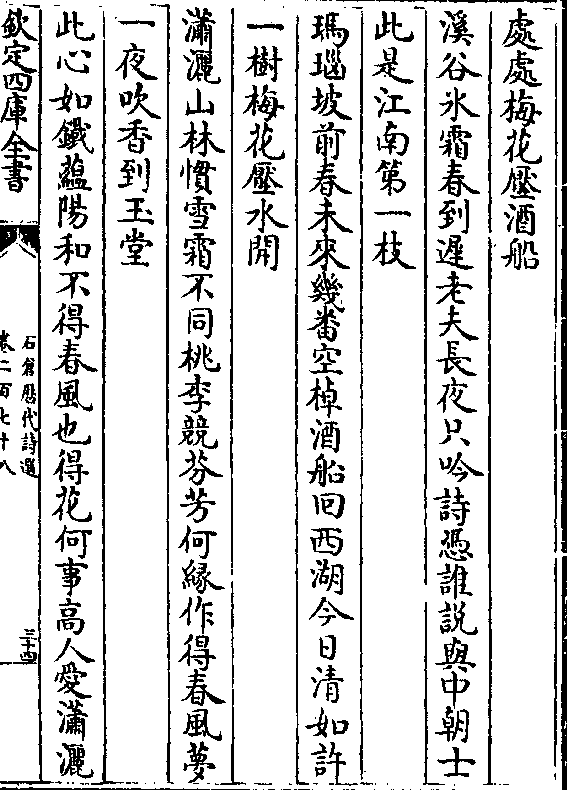 處處梅花壓酒船
溪谷氷霜春到遲老夫長夜只吟詩憑誰説與中朝士
此是江南第一枝
瑪瑙坡前春未來幾番空棹酒船回西湖今日清如許
一樹梅花壓水開
瀟灑山林慣雪霜不同桃李競芬芳何緣作得春風夢
一夜吹香到玉堂
此心如鐵藴陽和不得春風也得花何事高人愛瀟灑
欽定四庫全書
石倉歴代詩選
卷二百七十八
三十四